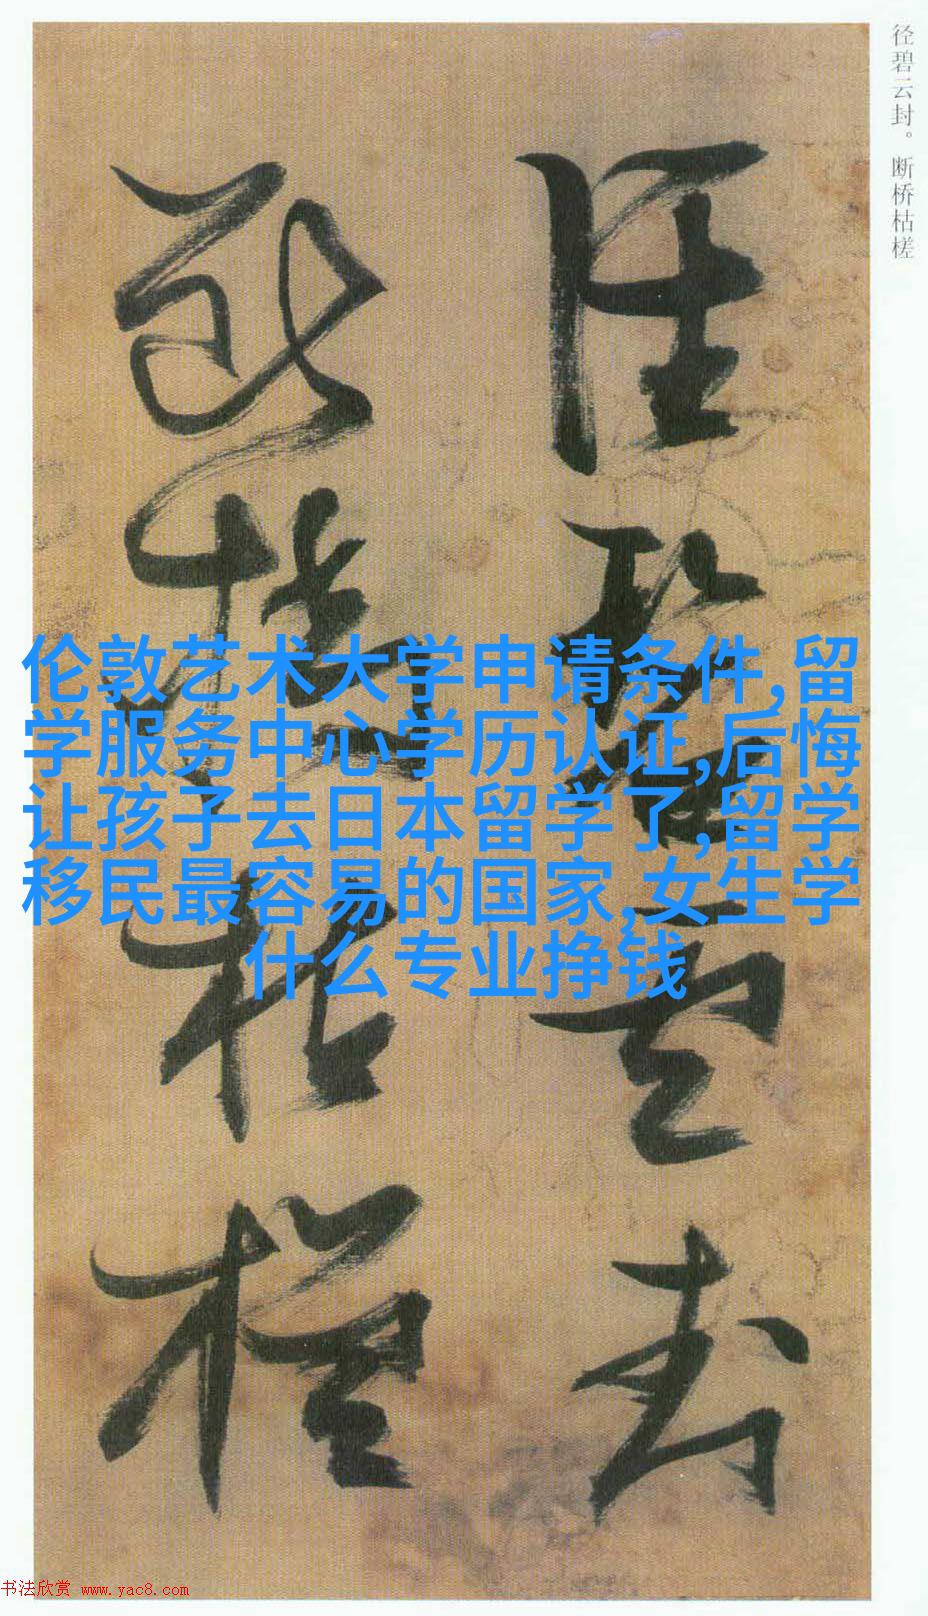 径碧云封。断桥枯槎
径碧云封
断桥枯槎
伦敦艺术大学申请条件,留
学服务中心学历认证,后悔
让孩子去日本留学了,留学
移民最容易的国家,女生学
什么专业挣钱
书法欣赏 www.yac8.com